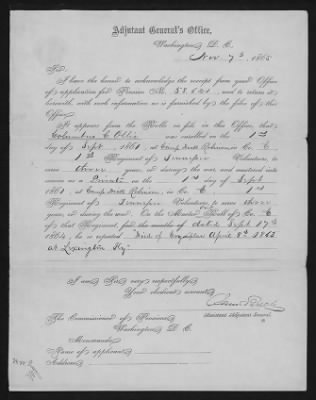 Adjutant General's Office,
Washington, D. C.
Nov. 7th, 1865
Sir:
I have the honor to acknowledge the receipt from your Office
of application for Pension No. 58.
and to return it
herewith, with such information as is furnished by the files of this
Office.
It appears from the Rolls on file in this Office, that
Columbus C. Ollis was enrolled on the 1st
day of Sept, 1861, at Camp Dick Robinson, in Co. E
1st Regiment of Tennessee Volunteers, to
serve three years, or during the war, and mustered into
service as a Private on the 1st day of Sept
1861, at Camp Dick Robinson, in Co. E, 1st
Regiment of Tennessee Volunteers, to serve three
years, or during the war. On the Muster Roll of Co. E
of that Regiment, for the months of dated Sept 17th
1864, he is reported Died of Erysipelas April 8th 1862
at Lexington Ky.
I am, Sir, very respectfully,
Your obedient servant,
Assistant Adjutant General.
The Commissioner of Pensions,
Washington, D. C.
Memoranda:
Name of applicant,
Address,